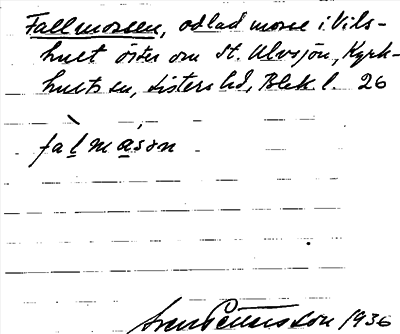 Fallmossen, odlad mosse i Vils-
hult öster om St. Ulvsjön, Kyrk-
hults sn, Listers hd, Blek. l. 26
falmåsən
Sven Pettersson 1936